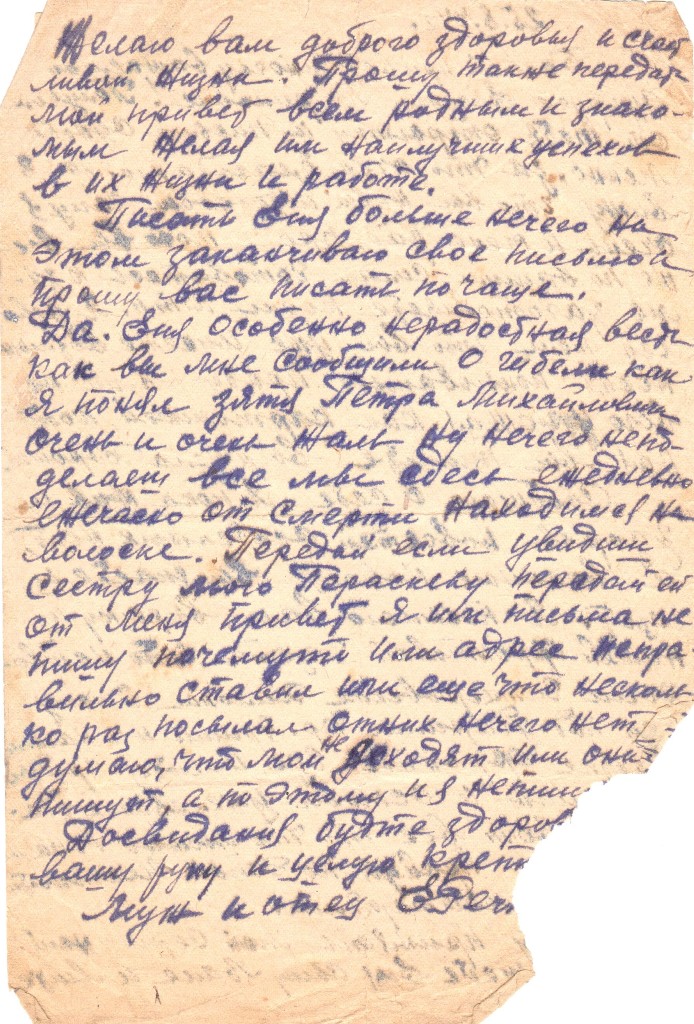 Желаю вам доброго здоровья и счаст
ливой жизни. Прошу также передать
мой привет всем родным и знако-
мым желая им наилучших успехов
в их жизни и работе.
Писать Зия больше нечего на
этом заканчиваю свое письмо и
прошу вас писать по чаще.
Да. Зия особенно нерадостная весть
как вы мне сообщили о гибели как
я понял зятя Петра Михайловича
очень и очень жаль ну нечего непо-
делаеш все мы сдесь ежедневно
ежечасно от смерти находимся на
волоске. Передай если увидиш
сестру мою Пераскеву передай ей
от меня привет я им письма не
пишу почемуто или адрес непра-
вильно ставил или еще что несколь-
ко раз посылал отних нечего нет
думаю, что мои не доходят или они
пишут, а по этому и я непиш
Досвидания будте здоров
вашу руку и целую креп
Муж и отец